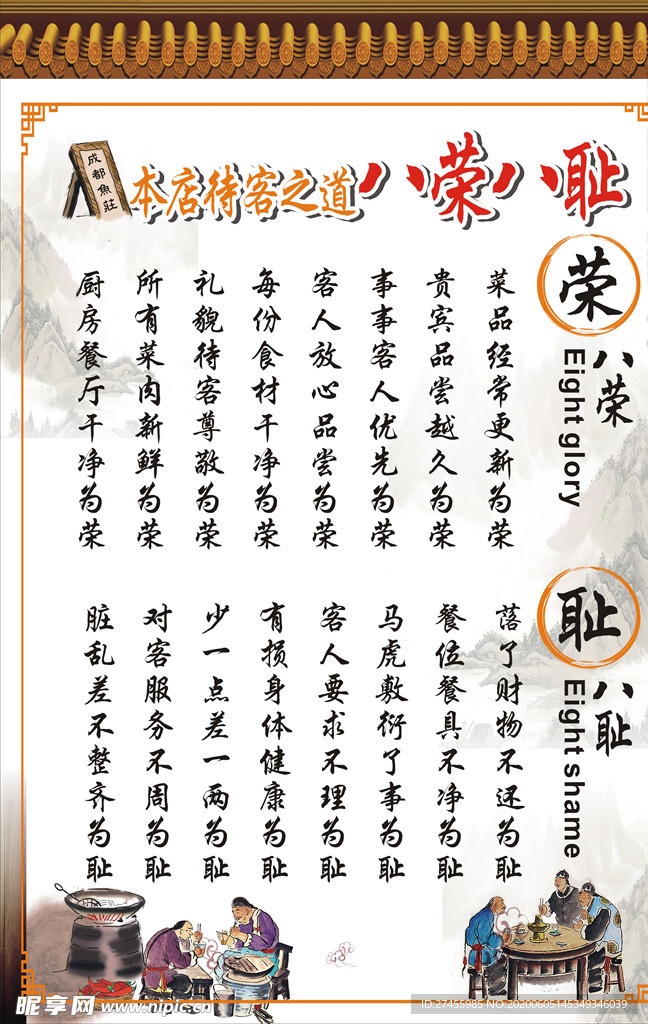 成都魚莊
本店待客之道八荣八耻
荣
八荣
Eight glory
菜品经常更新为荣
贵宾品尝越久为荣
事事客人优先为荣
客人放心品尝为荣
每份食材干净为荣
礼貌待客尊敬为荣
所有菜肉新鲜为荣
厨房餐厅干净为荣
耻
八耻
Eight shame
落了财物不还为耻
餐位餐具不净为耻
马虎敷衍了事为耻
客人要求不理为耻
有损身体健康为耻
少一点差一两为耻
对客服务不周为耻
脏乱差不整齐为耻
昵享网 www.nipic.cn
ID:27455985 NO:20200605145349346039